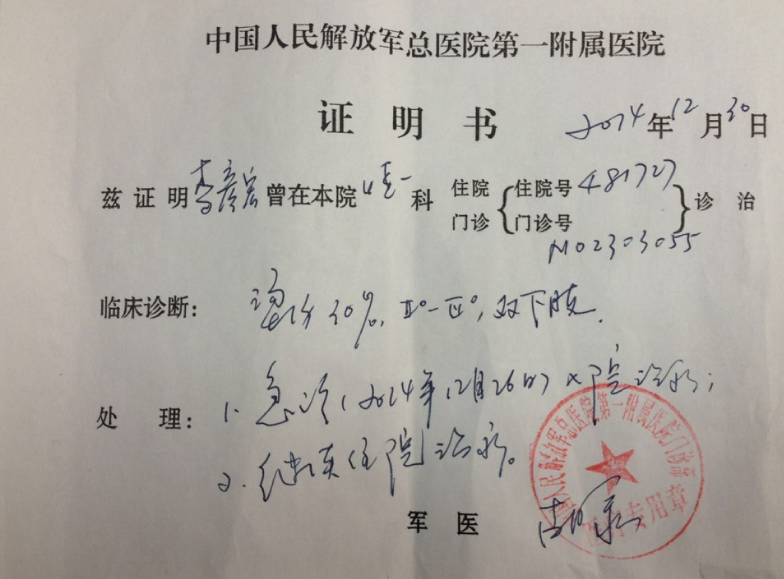 中国人民解放军总医院第一附属医院
证明书 2014年12月30日
兹证明李彦宏曾在本院烧一科 住院 门诊 { 住院号 481727 门诊号 M02303055 } 诊治
临床诊断： 烫伤30%，II°-III°，双下肢.
处理： 1. 急诊(2014年12月26日)入院治疗；
2. 继续住院治疗。
军医
中国人民解放军总医院第一附属医院门诊部
专用章